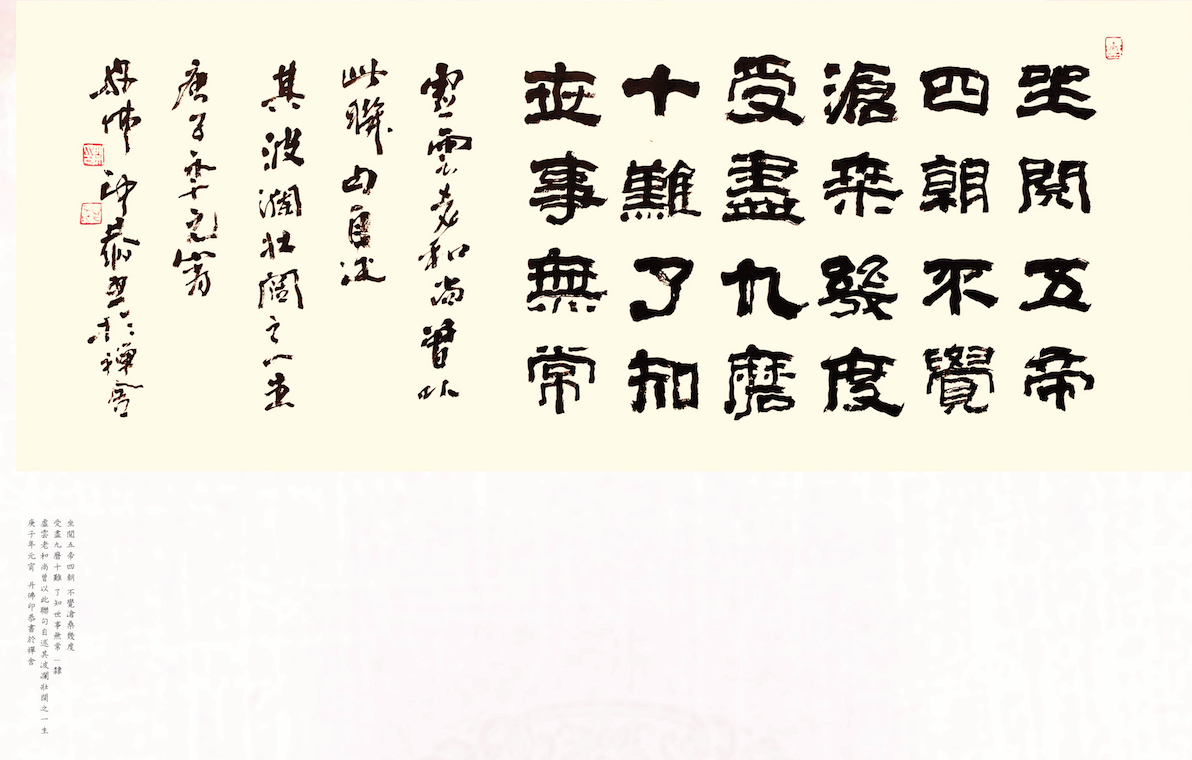 坐閱五帝
四朝不覺
滄桑幾度
受盡九磨
十難了知
世事無常
虛雲老和尚曾以
此聯句自述
其波瀾壯闊之一生
庚子年元宵
佛印恭書於禪舍
坐閱五帝四朝 不覺滄桑幾度
受盡九磨十難 了知世事無常 | 隸
虛雲老和尚曾以此聯句自述其波瀾壯闊之一生
庚子年元宵 佛印恭書於禪舍